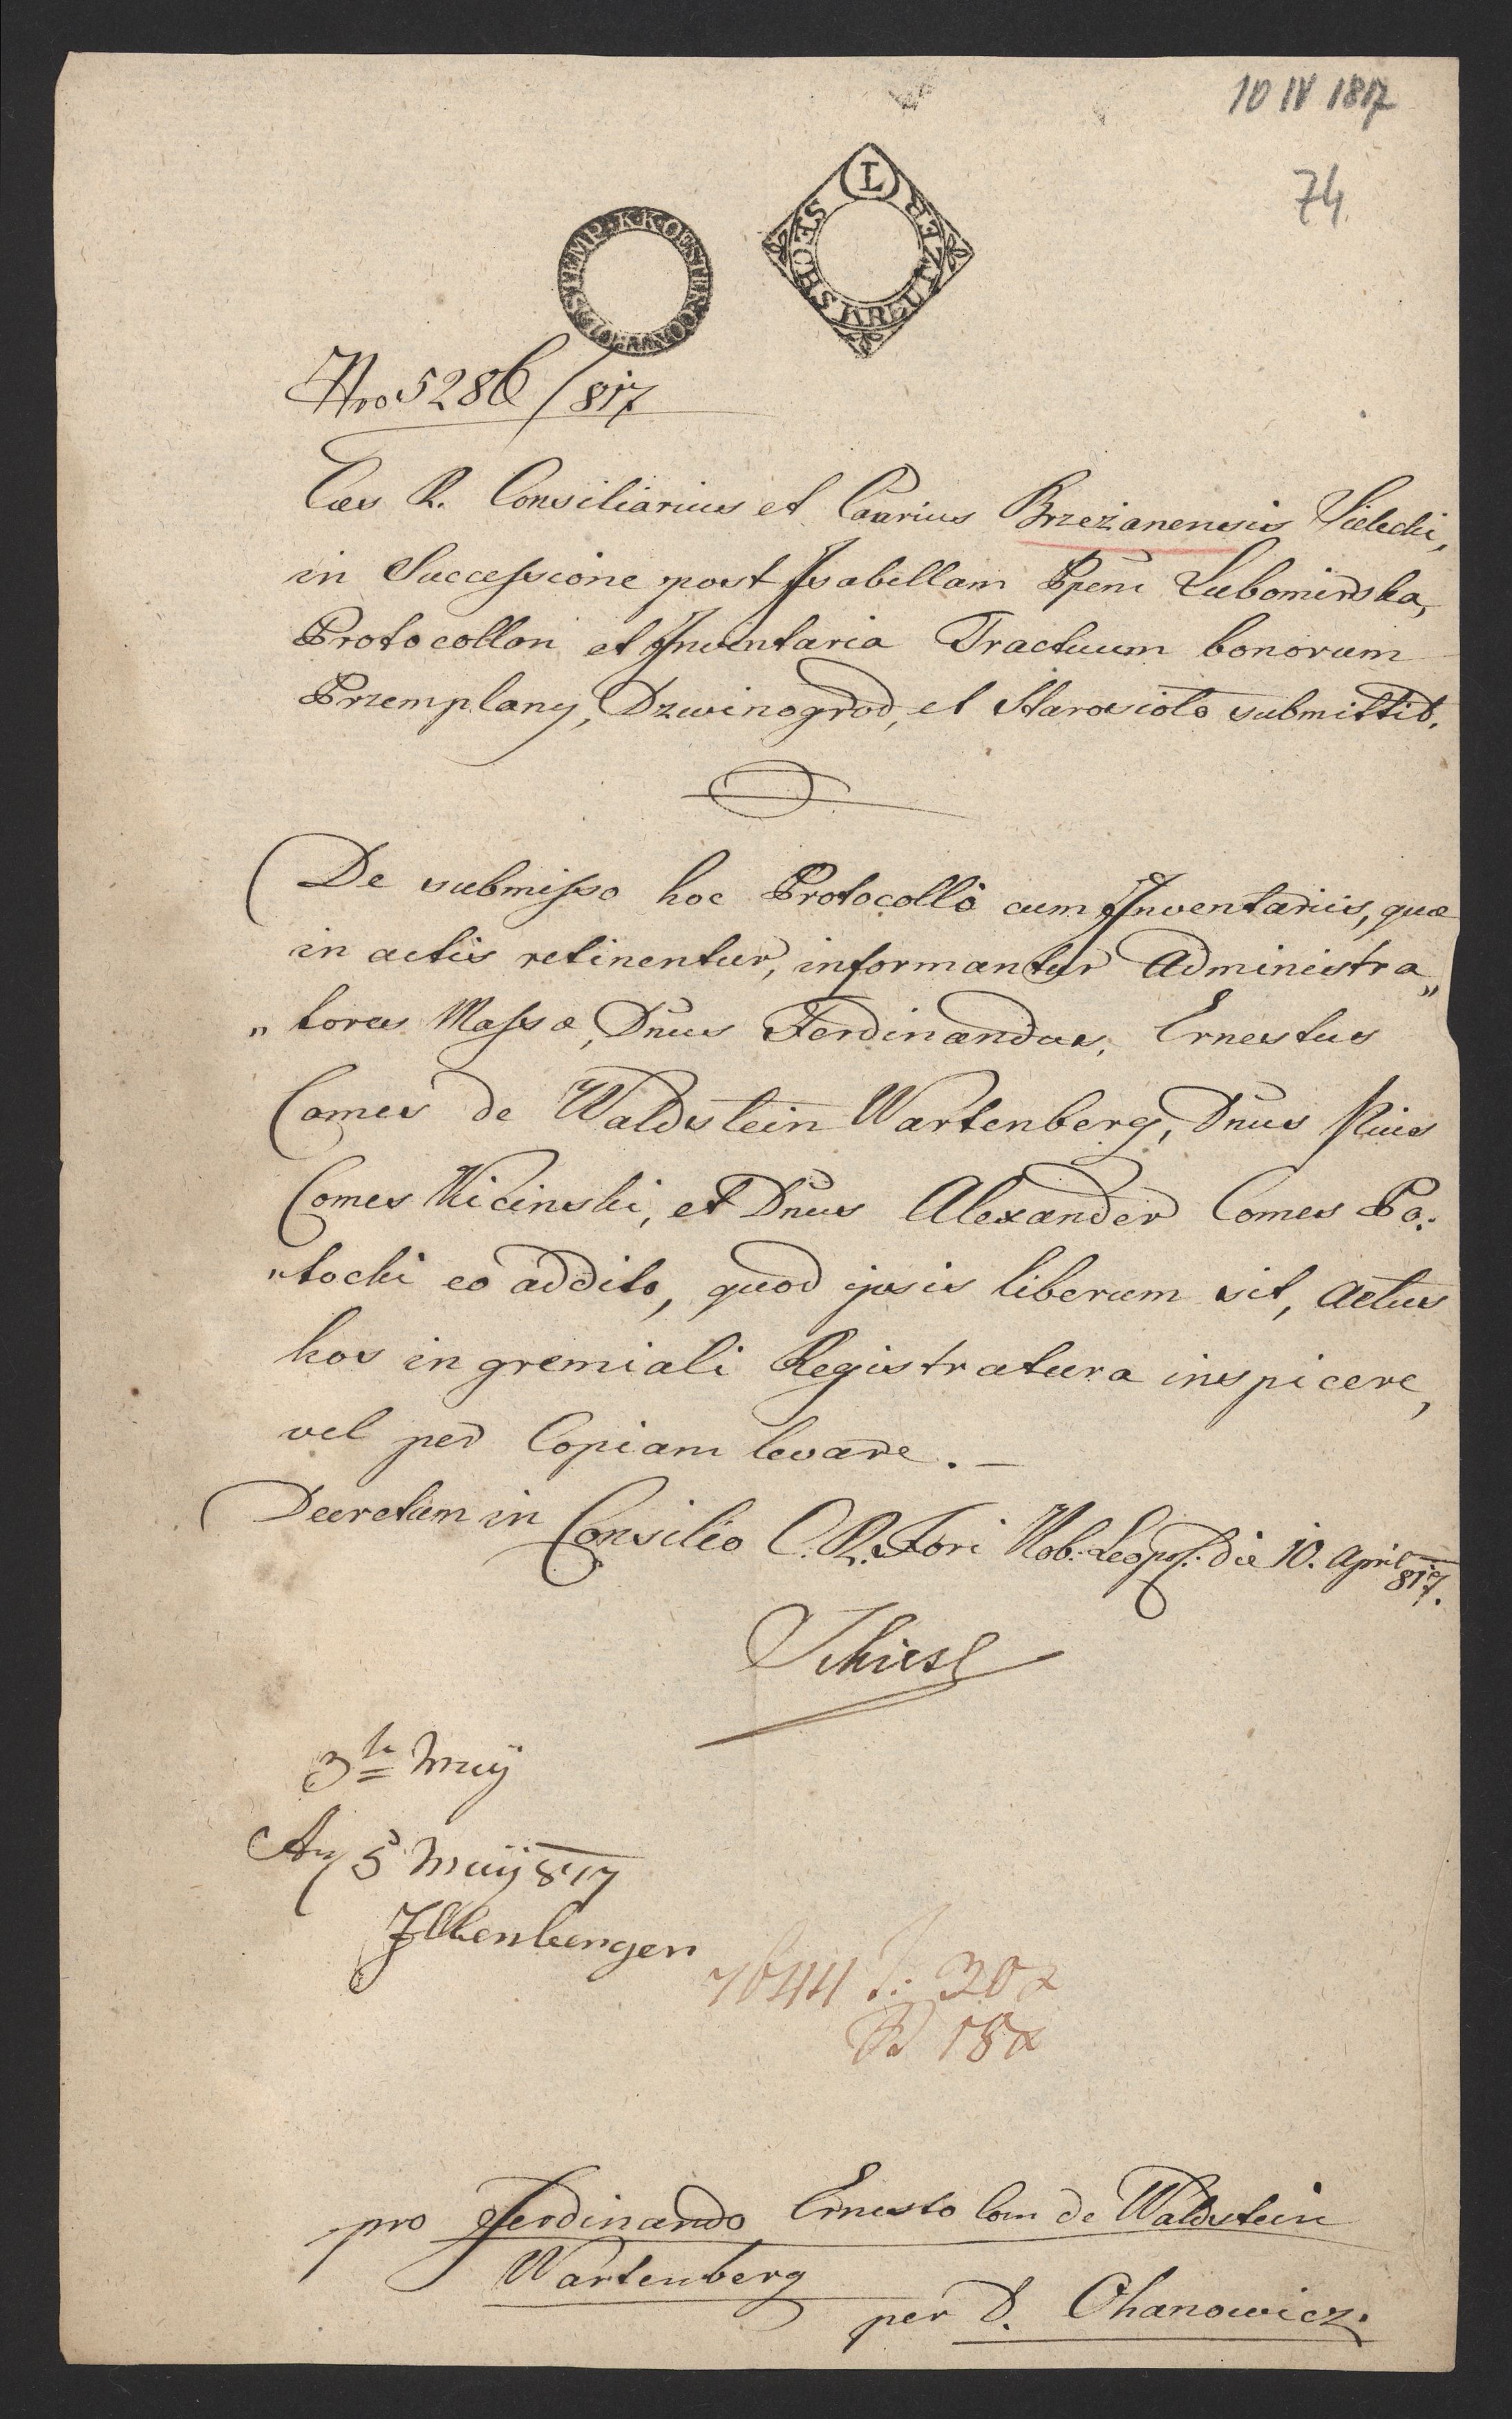 10 IV 1817
74
STEMP. K. K. OESTER. CONV. GELD
L
SECHS KREUTZER
Nro 5286/817
Cæs R. Consiliarius et Caarius Brzeżanensis Sielecki,
in Successione post Isabellam Ppem Lubomirska,
Protocollon et Inventaria Tractuum bonorum
Przemplany, Dzwinogrod, et Starosioło submittit.
De submisso hoc Protocollo cum Inventariis, quæ
in actis retinentur, informantur Administra„
„tores Massæ, Dnus Ferdinandus, Ernestus
Comes de Waldstein Wartenberg, Dnus Pius
Comes Kicinski, et Dnus Alexander Comes Po:
„tocki eo addito, quod ipsis liberum sit, actus
hos in gremiali Registratura inspicere,
vel per Copiam levare. –
Decretum in Consilio C. R. Fori Nob. Leopol. die 10. April 817.
Schiesl
3 May
5 May 817
7644 30x
18x
pro Ferdinando Ernesto Com de Waldstein
Wartenberg
per D. Ohanowicz.